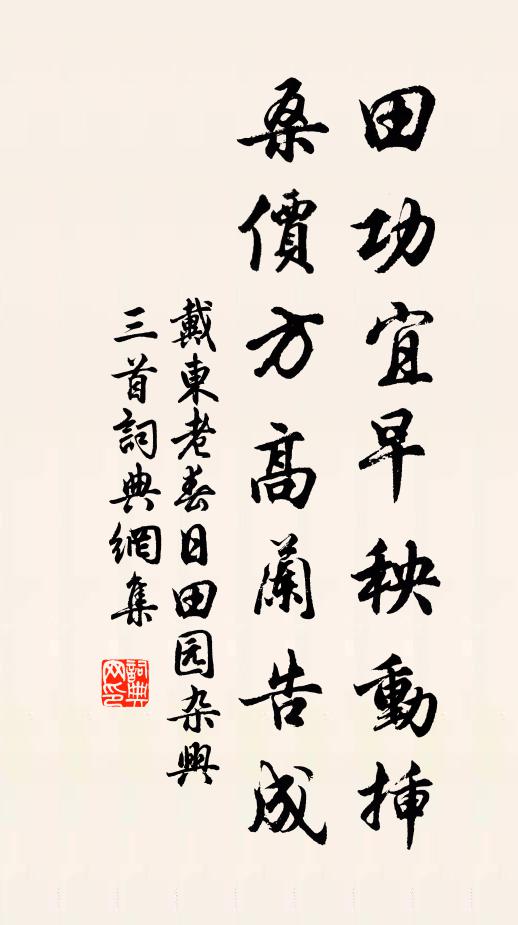 田功宜早秧動揷
桑價方高蘭告成
戴東老春日田园杂興
三首詞典網集
詞典网印